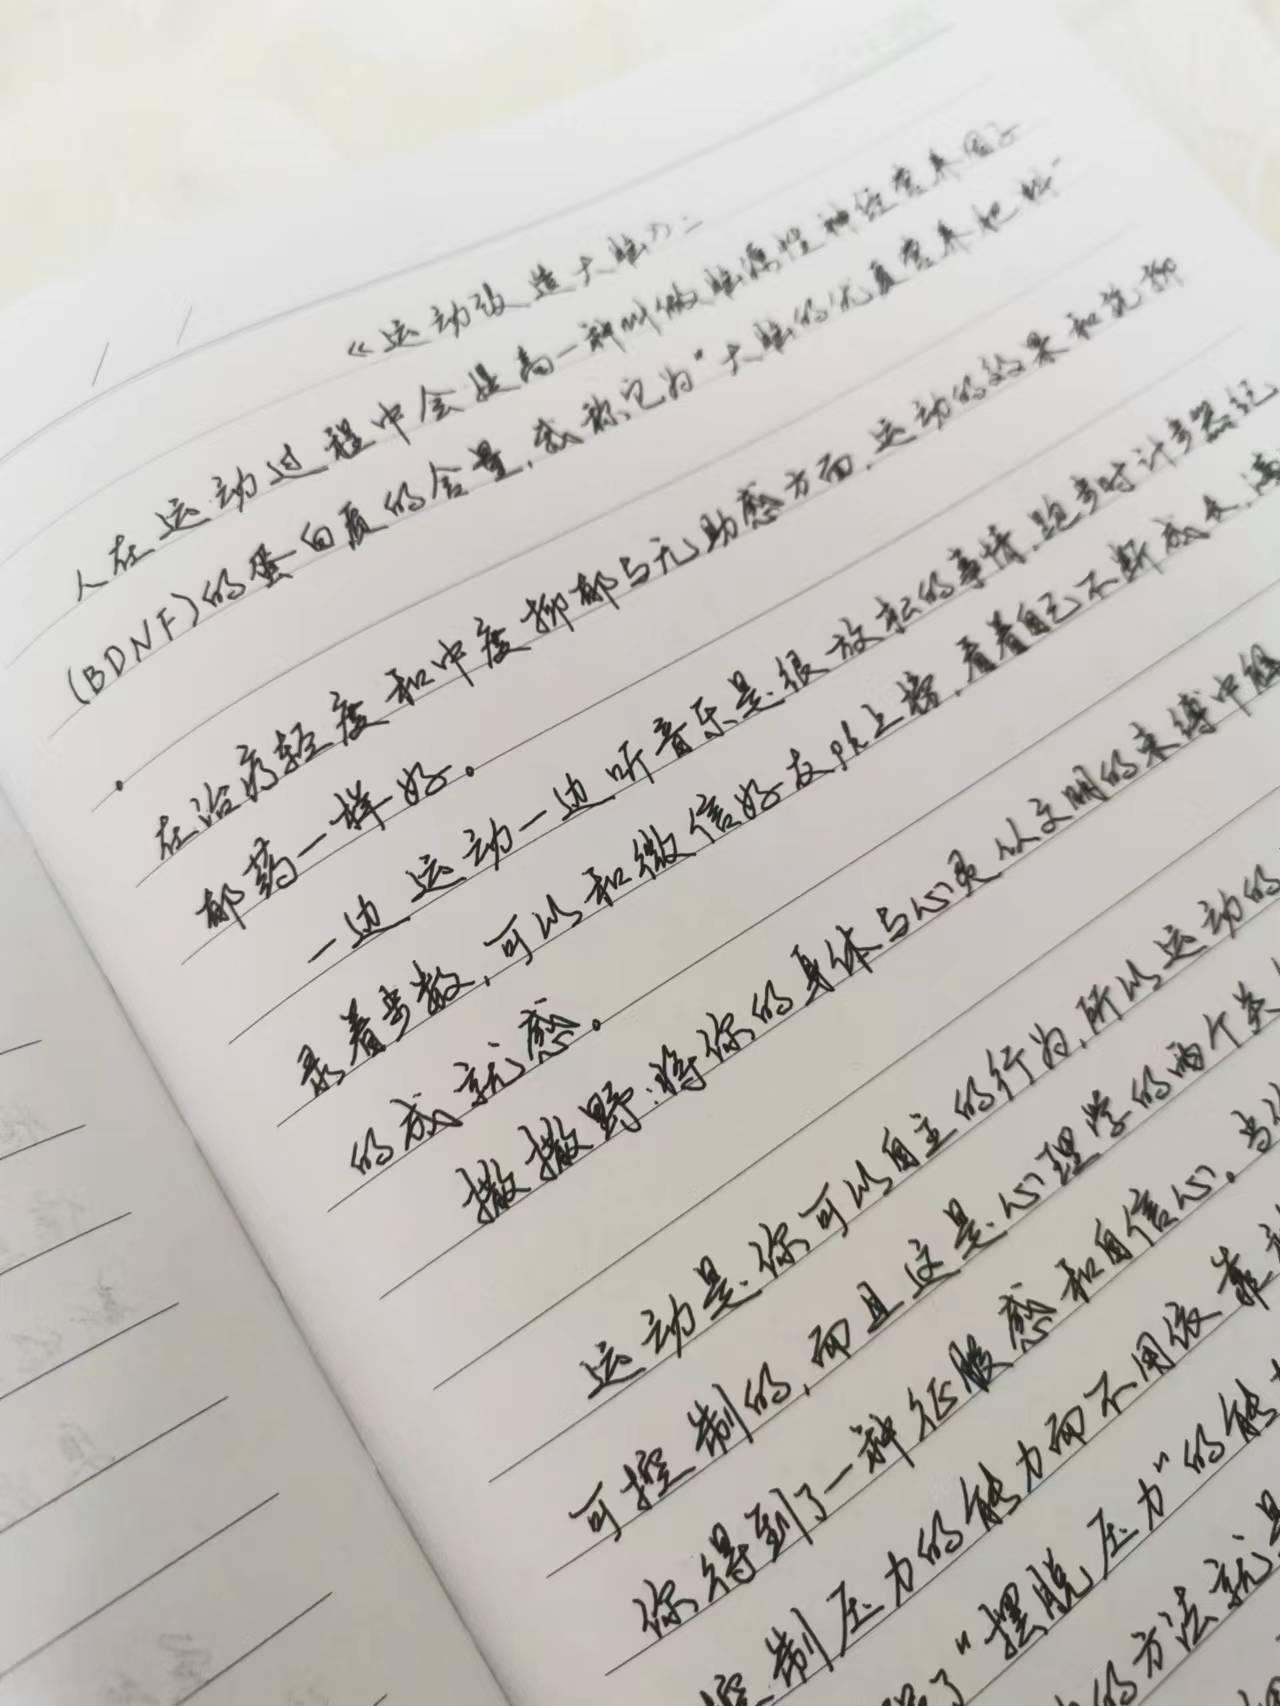 《运动改造大脑》:
人在运动过程中会提高一种叫做脑源性神经营养因子
(BDNF)的蛋白质的含量,我称它为"大脑的优质营养肥料"
.
在治疗轻度和中度抑郁与无助感方面,运动的效果和抗抑
郁药一样好。
一边运动一边听音乐是很放松的事情,跑步时计步器记
录着步数,可以和微信好友PK上榜,看着自己不断成长,满
的成就感。
撒撒野:将你的身体与心灵从文明的束缚中解
运动是你可以自主的行为,所以运动的
可控制的,而且这是心理学的两个关
你得到了一种征服感和自信心.当你
控制压力的能力而不用依靠
了"摆脱压力"的能
的方法就是